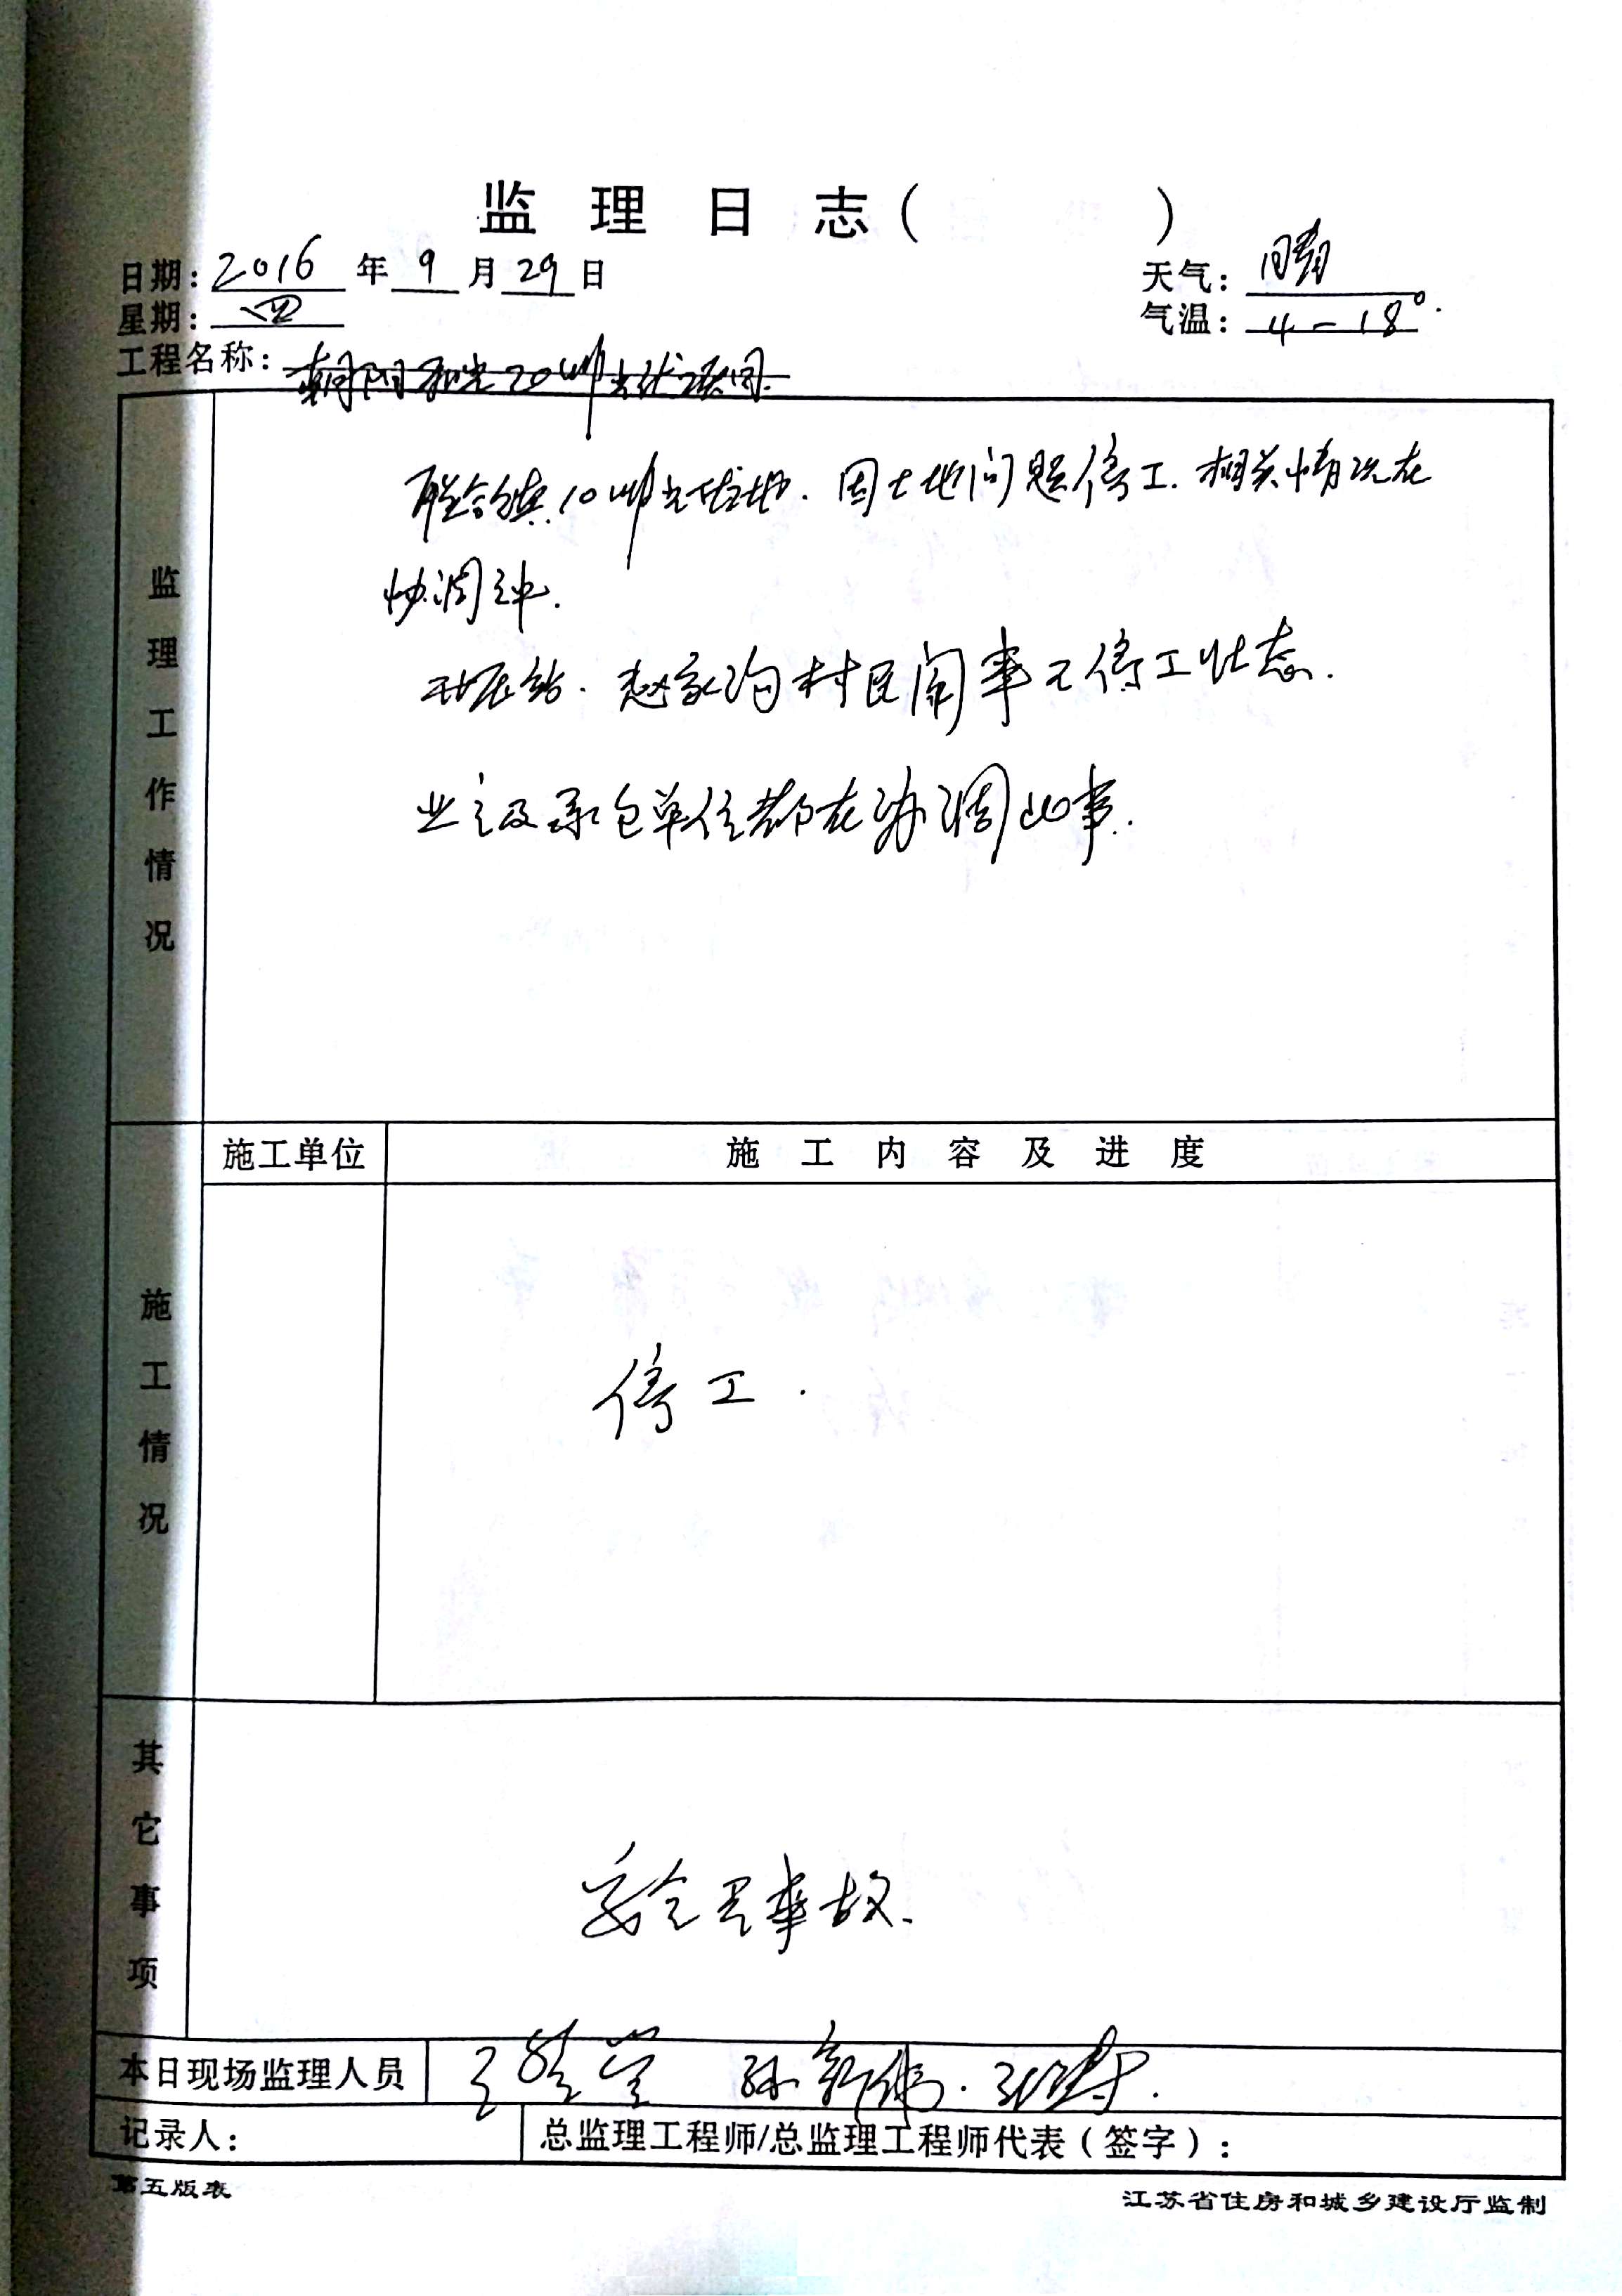 监理日志(          )
日期: 2016 年 9 月 29 日
天气: 晴
星期: 四
气温: 4-18°.
工程名称: 朝阳和光20MW光伏项目.
监理工作情况
联合镇.10MW光伏场地.因土地问题停工.相关情况在
协调之中.
赵家沟村民闹事已停工状态.
业主及承包单位都在协调此事.
施工情况
施工单位
施工内容及进度
停工.
其它事项
安全无事故.
本日现场监理人员
孙新伟.
记录人:
总监理工程师/总监理工程师代表(签字):
第五版表
江苏省住房和城乡建设厅监制